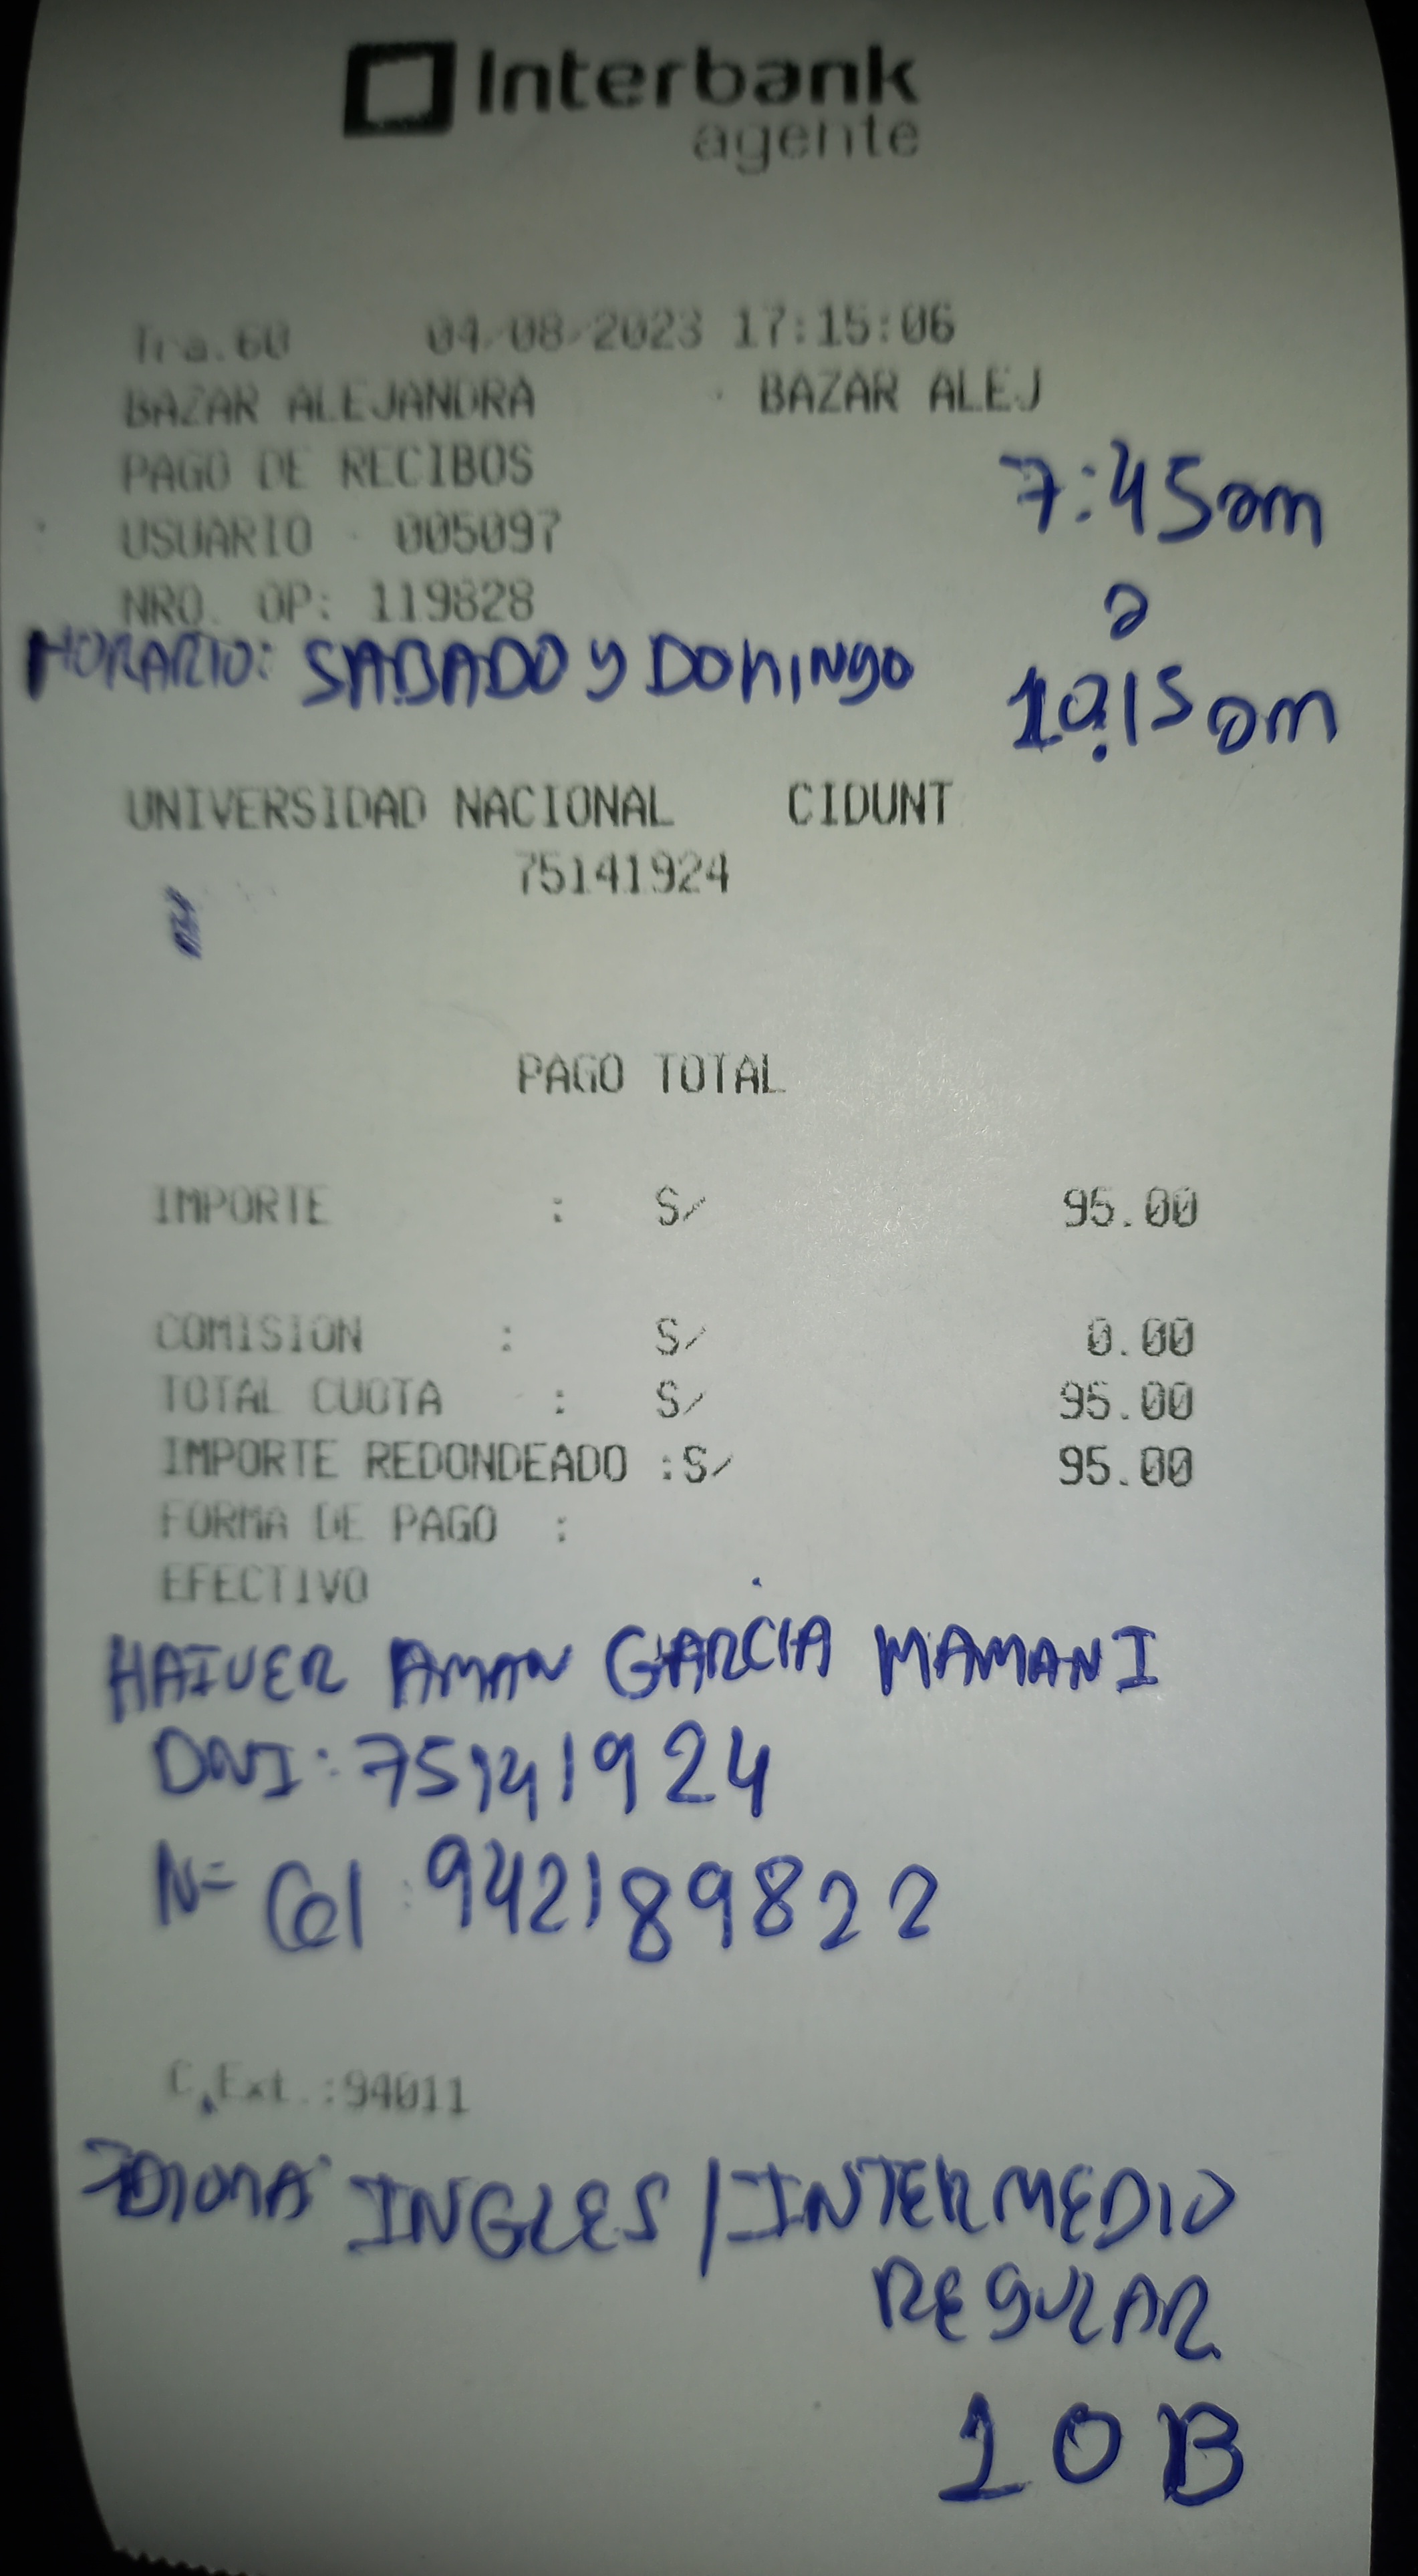 Interbank
agente
Tra.60 04/08/2023 17:15:06
BAZAR ALEJANDRA BAZAR ALEJ
PAGO DE RECIBOS
USUARIO 005097
7:45am
NRO. OP: 119828
a
HORARIO: SABADO y DOMINGO
10:15am
UNIVERSIDAD NACIONAL CIDUNT
75141924
PAGO TOTAL
IMPORTE : S/ 95.00
COMISION : S/ 0.00
TOTAL CUOTA : S/ 95.00
IMPORTE REDONDEADO :S/ 95.00
FORMA DE PAGO :
EFECTIVO
HAIVER AMAN GARCIA MAMANI
DNI: 75141924
N= Cel: 942189822
C.Ext.:94011
IDIOMA: INGLES / INTERMEDIO
REGULAR
10B